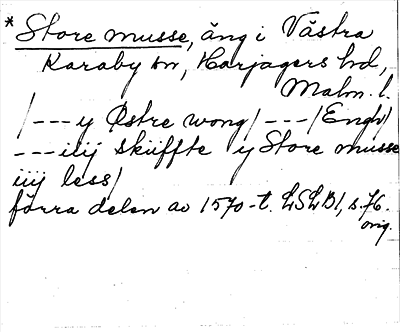 * Store musse, äng i Västra
Karaby sn, Harjagers hd,
Malm. l.
/--- y Østre wong/ ---/Engh/
--- iiij skiiffte y Store musse
iiij less/
förra delen av 1570-t. LSLB1, s. 76.
orig.